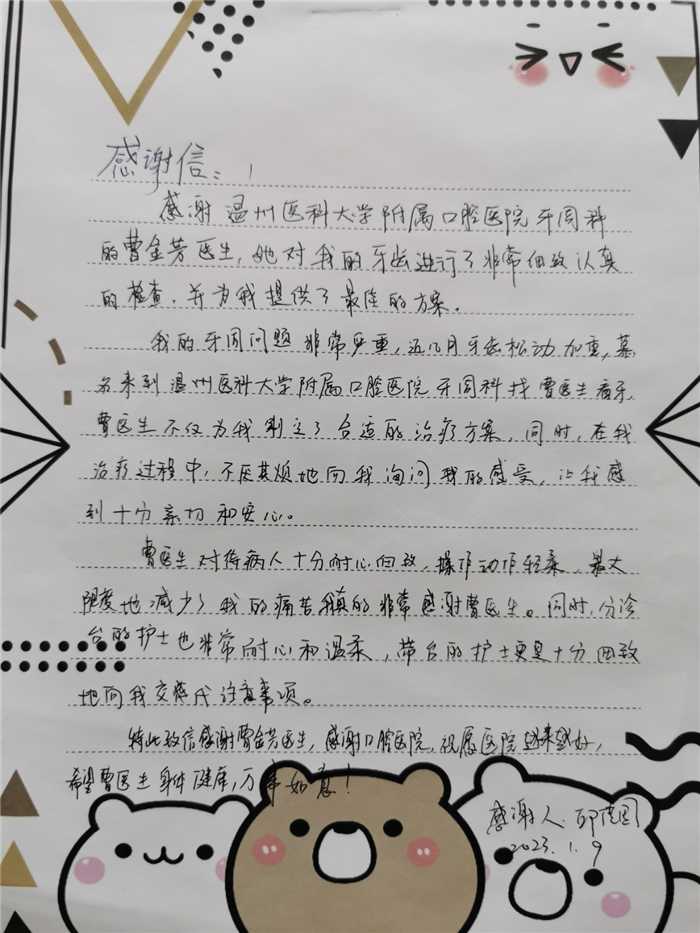 感谢信：
感谢温州医科大学附属口腔医院牙周科
的曹金芳医生，她对我的牙齿进行了非常细致认真
的检查，并为我提供了最佳的方案。
我的牙周问题非常严重，近几月牙齿松动加重，慕
名来到温州医科大学附属口腔医院牙周科找曹医生看牙，
曹医生不仅为我制定了合适的治疗方案，同时，在我
治疗过程中，不厌其烦地向我询问我的感受，让我感
到十分亲切和安心。
曹医生对待病人十分耐心细致，操作动作轻柔，最大
限度地减少了我的痛苦我真的非常感谢曹医生。同时，分诊
台的护士也非常耐心和温柔，带台的护士更是十分细致
地向我交代注意事项。
特此致信感谢曹金芳医生，感谢口腔医院，祝愿医院越来越好，
希望曹医生身体健康，万事如意！
感谢人
2023.1.9